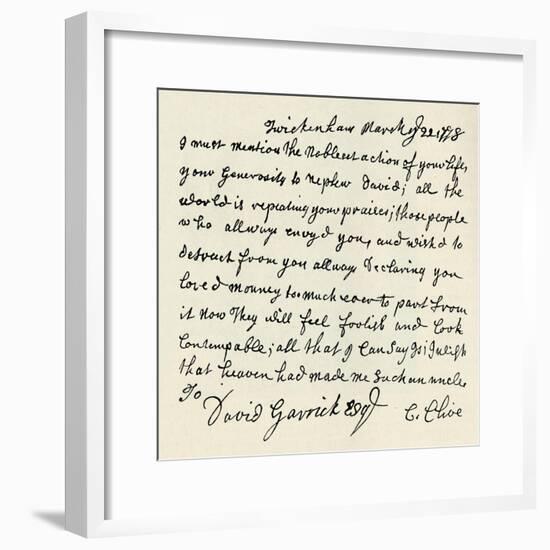 Twickenham March ye 22 1778
I must mention the Noblest action of your life,
your Generosity to Nephew David; all the
world is repeating your praises; those people
who allways envyd you, and wishd to
detract from you allways Declaring you
loved Monney too much ever to part from
it now They will feel foolish and look
Contempable; all that I Can Say Is; I wish
that heaven had made me Such an uncle
To
David Garrick Esqr C. Clive